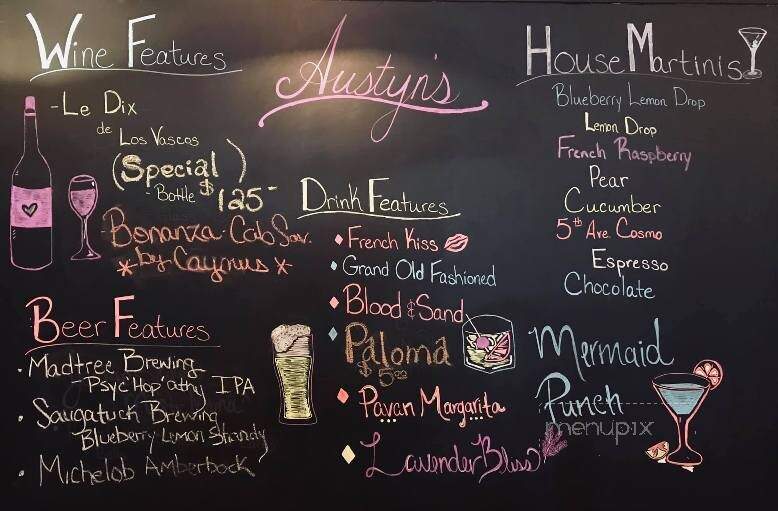 Austyn's
Wine Features
- Le Dix
de
Los Vascos
(Special)
- Bottle $125-
Bonanza Cab Sav.
* by Caymus *
Beer Features
· Madtree Brewing
- Psyc'Hop'athy IPA
· Saugatuck Brewing
Blueberry Lemon Shandy
· Michelob Amberbock
Drink Features
French Kiss
Grand Old Fashioned
Blood & Sand
Paloma
$5.00
Pavan Margarita
Lavender Bliss
House Martinis
Blueberry Lemon Drop
Lemon Drop
French Raspberry
Pear
Cucumber
5th Ave Cosmo
Espresso
Chocolate
Mermaid
Punch
menupix